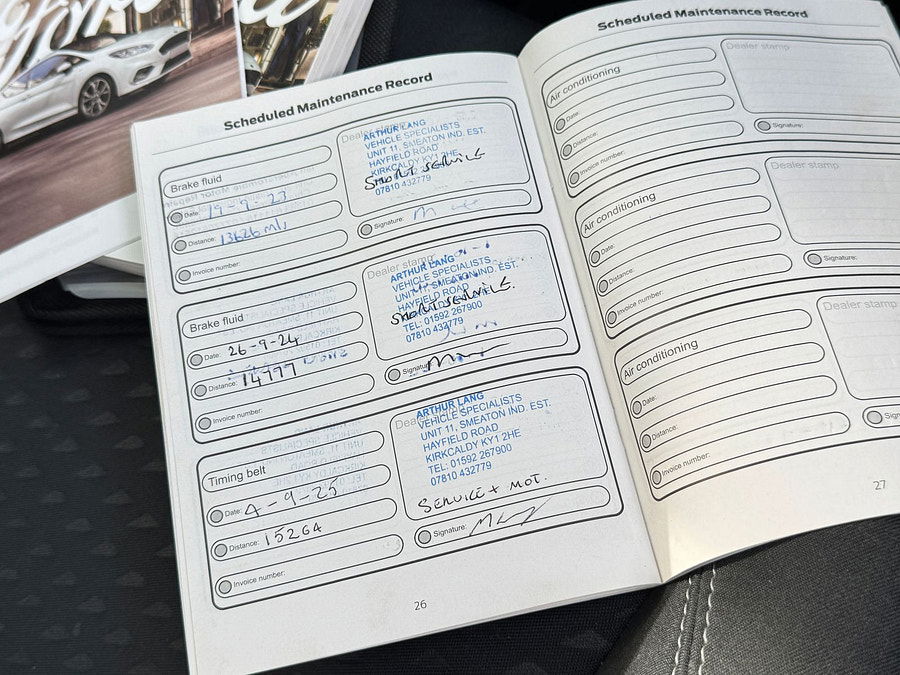 Ford
Scheduled Maintenance Record
Brake fluid
Date: 19-9-23
Distance: 13626 mls
Invoice number:
Dealer stamp
ARTHUR LANG
VEHICLE SPECIALISTS
UNIT 11, SMEATON IND. EST.
HAYFIELD ROAD
KIRKCALDY KY1 2HE
07810 432779
SMART SERVICE
Signature:
Brake fluid
Date: 26-9-24
Distance: 14777
Invoice number:
Dealer stamp
ARTHUR LANG
VEHICLE SPECIALISTS
UNIT 11, SMEATON IND. EST.
HAYFIELD ROAD
TEL: 01592 267900
07810 432779
SMART SERVICE.
Signature:
Timing belt
Date: 4-9-25
Distance: 15264
Invoice number:
ARTHUR LANG
VEHICLE SPECIALISTS
UNIT 11, SMEATON IND. EST.
HAYFIELD ROAD
KIRKCALDY KY1 2HE
TEL: 01592 267900
07810 432779
SERVICE + MOT.
Signature:
26
Scheduled Maintenance Record
Air conditioning
Date:
Distance:
Invoice number:
Dealer stamp
Signature:
Air conditioning
Date:
Distance:
Invoice number:
Dealer stamp
Signature:
Air conditioning
Date:
Distance:
Invoice number:
Dealer stamp
27